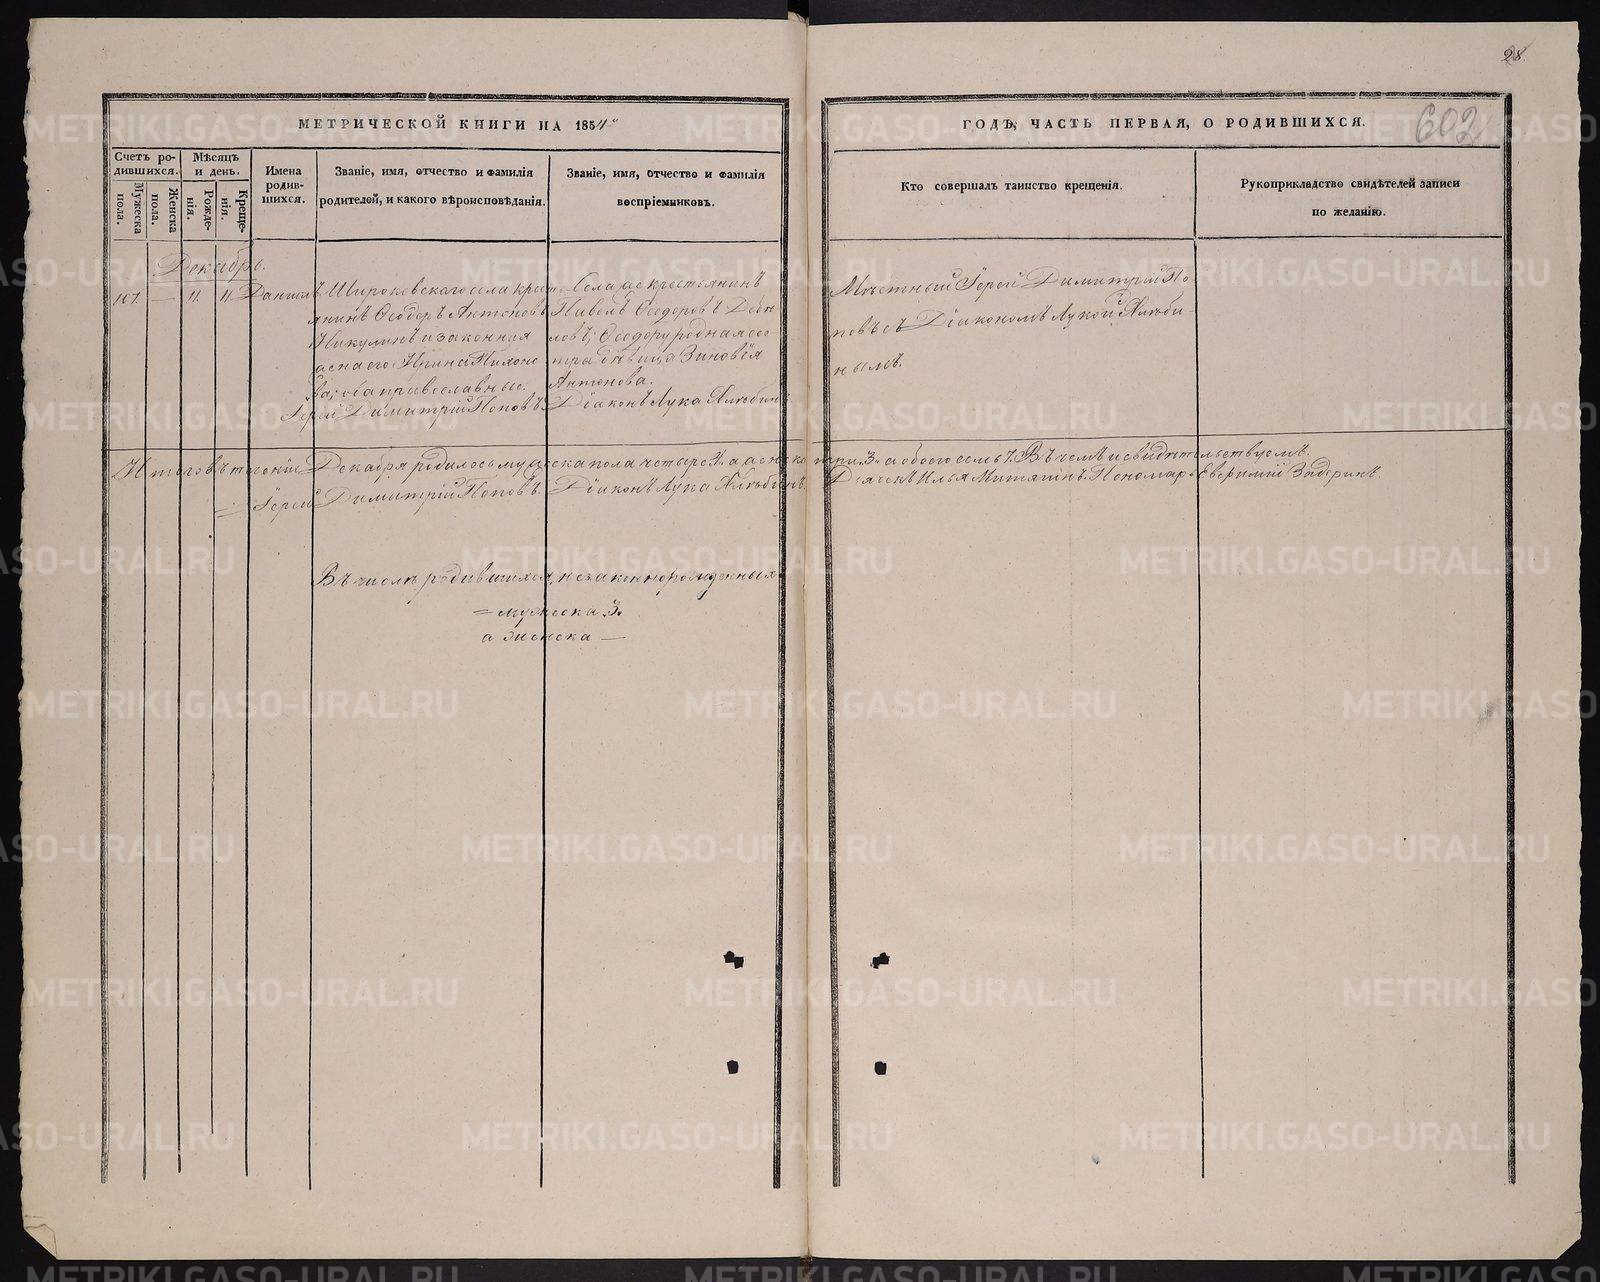 28.
602
МЕТРИЧЕСКОЙ КНИГИ НА 1854
ГОДЪ, ЧАСТЬ ПЕРВАЯ, О РОДИВШИХСЯ.
Счетъ ро-
дившихся.
Мѣсяцъ
и день.
Имена
родив-
шихся.
Званіе, имя, отчество и фамилія
родителей, и какого вѣроисповѣданія.
Званіе, имя, отчество и фамилія
воспріемниковъ.
Кто совершалъ таинство крещенія.
Рукоприкладство свидѣтелей записи
по желанію.
Мужеска
пола.
Женска
пола.
Рожде-
нія.
Креще-
нія.
Декабрь.
107. — 11. 11. Даніилъ
Широковскаго села крест-
янинъ Ѳеодоръ Антоновъ
Никулинъ и законная
жена его Ирина
ва; оба православные.
Іерей Димитрій Поповъ.
Села же крестьянинъ
Павелъ Ѳеодоровъ
Ѳеодору родная сес-
тра дѣвица Зиновія
Антонова.
Діаконъ Лука
Мѣстный Іерей Димитрій По-
повъ съ Діакономъ Лукой
нымъ.
Итого въ теченіи Декабря родилось мужеска пола четыре 4. а женска три. 3. а обоего семь 7. Въ чемъ и свидѣтельствуемъ.
Іерей Димитрій Поповъ. Діаконъ Лука
Дьячекъ Илья Митяшинъ. Пономарь Евѳимій Задоринъ.
Въ числѣ родившихся, незаконнорожденныхъ
= мужеска 3.
а женска —
METRIKI.GASO-URAL.RU